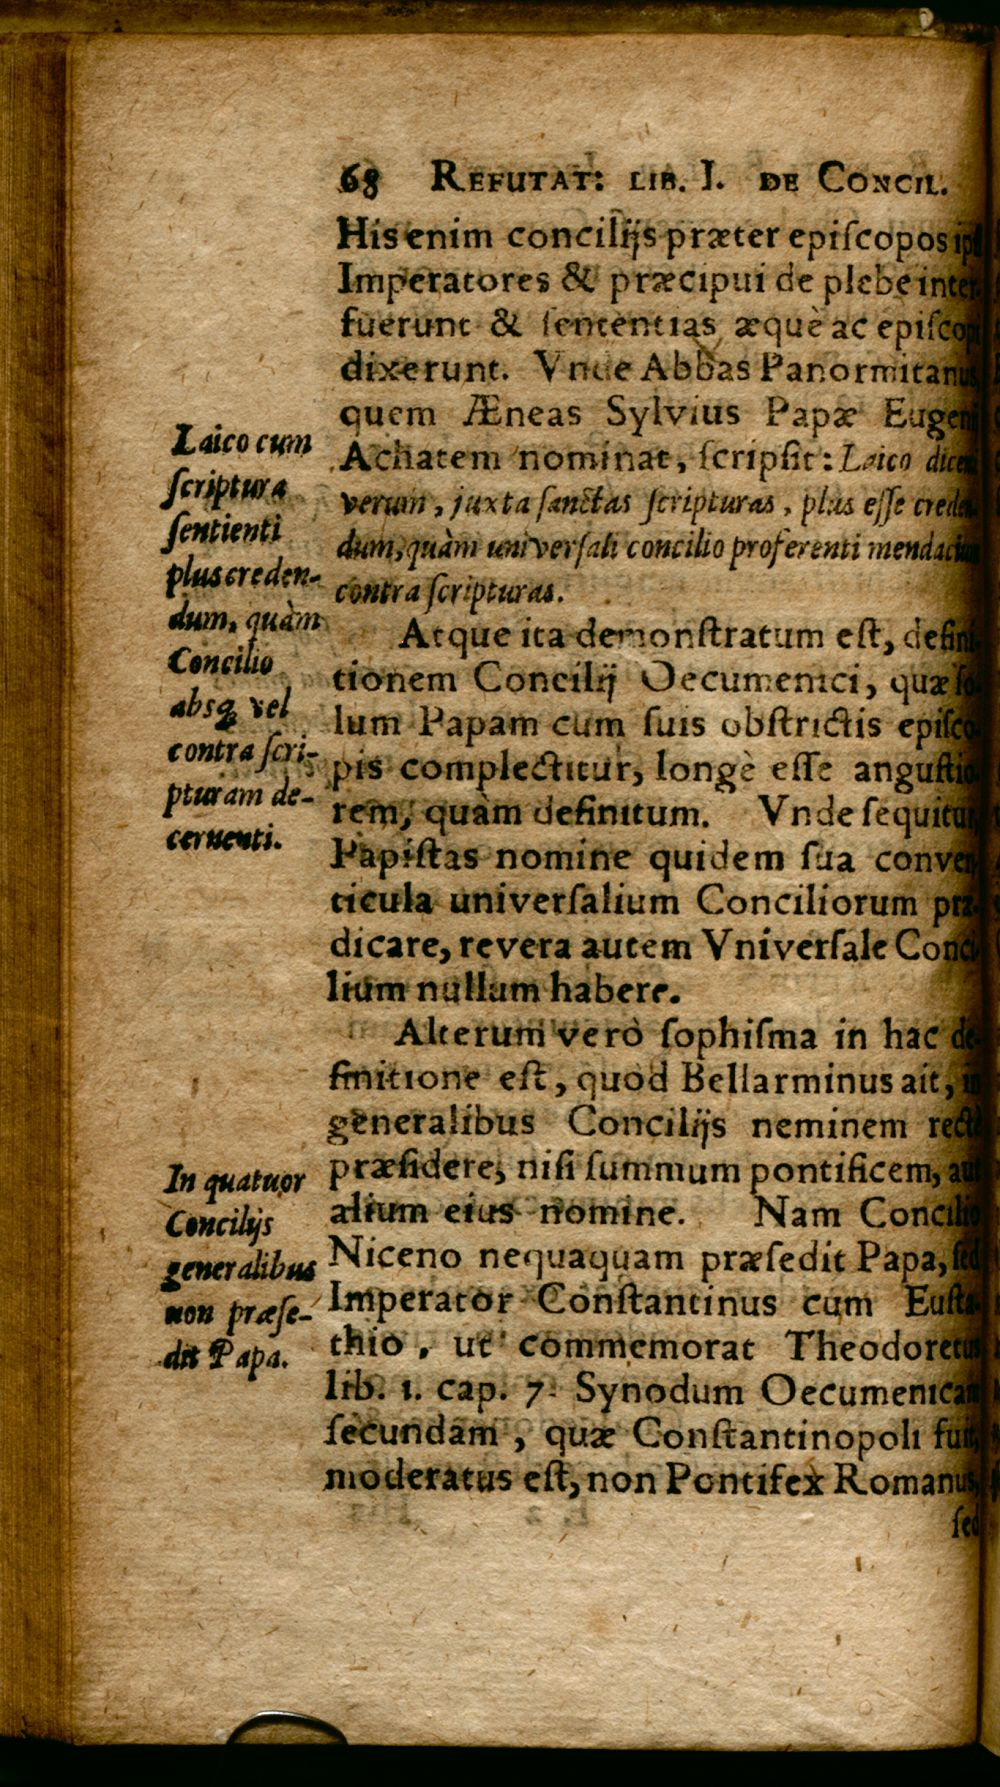 68 REFUTAT: LIB. I. DE CONCIL.
His enim concilijs præter episcopos ipsi
Imperatores & præcipui de plebe inter-
fuerunt & sententias æquè ac episcopi
dixerunt. Vnde Abbas Panormitanus,
quem Æneas Sylvius Papæ Eugenij
Achatem nominat, scripsit: Laico dicenti
verum, juxta sanctas scripturas, plus esse creden-
dum, quàm universali concilio proferenti mendacium
contra scripturas.
Laico cum
scriptura
sentienti
plus creden-
dum, quàm
Concilio
absq; vel
contra scri-
pturam de-
cernenti.
Atque ita demonstratum est, defini-
tionem Concilij Oecumenici, quæ so-
lum Papam cum suis obstrictis episco-
pis complectitur, longè esse angustio-
rem, quàm definitum. Vnde sequitur,
Papistas nomine quidem sua conven-
ticula universalium Conciliorum præ-
dicare, revera autem Vniversale Conci-
lium nullum habere.
Alterum verò sophisma in hac de-
finitione est, quod Bellarminus ait, in
generalibus Concilijs neminem rectè
præsidere, nisi summum pontificem, aut
alium eius nomine. Nam Concilio
Niceno nequaquam præsedit Papa, sed
Imperator Constantinus cum Eusta-
thio, ut commemorat Theodoretus
lib. 1. cap. 7. Synodum Oecumenicam
secundam, quæ Constantinopoli fuit,
moderatus est, non Pontifex Romanus,
In quatuor
Concilijs
generalibus
non præse-
dit Papa.
sed